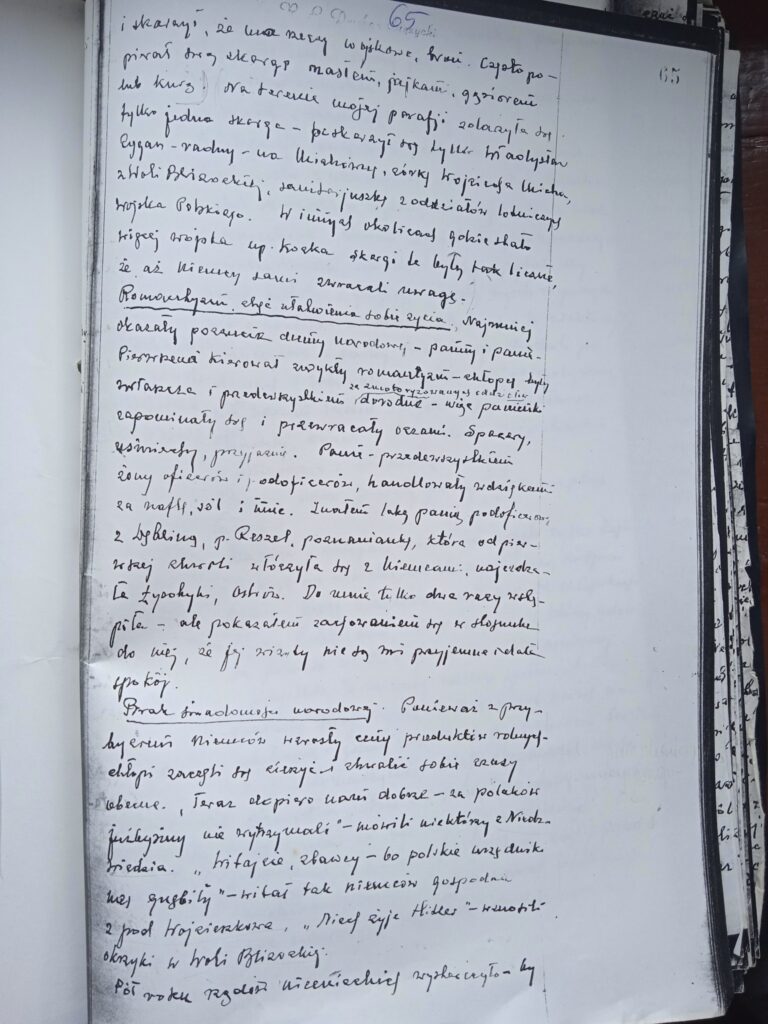 65
65
i skarżył, że ma rzeczy wojskowe, broń. Często po-
pierał swą skargę masłem, jajkami, gąsiorem
lub kurą. Na terenie mojej parafji zdarzyła się
tylko jedna skarga – poskarżył się tylko Władysław
Cygan – radny – na córkę Wojciecha
z Woli Blizockiej, sanitarjuszkę z oddziałów lotniczych
Wojska Polskiego. W innych okolicach gdzie stało
więcej wojska np. Kocka skargi te były tak liczne,
że aż Niemcy sami zwracali uwagę.
Romantyzm, chęć ułatwienia sobie życia. Najmniej
okazały poczucia dumy narodowej – panny i panie.
Pierwszemi kierował zwykły romantyzm – chłopcy byli
za zmotoryzowanych oddziałów
zwłaszcza i przedewszystkiem dorodne – więc panienki
zapominały się i przewracały oczami. Spacery,
uśmiechy, przyjaźnie. Panie – przedewszystkiem
żony oficerów i podoficerów, handlowały wdziękami
za naftę, sól i inne. Znałem taką panią podoficerową
z Dęblina, p. Reszel, poznaniankę, która od pier-
wszej chwili włóczyła się z Niemcami, najeżdża-
ła Życohyki, Ostrów. Do mnie tylko dwa razy wstą-
piła – ale pokazałem zachowaniem się w stosunku
do niej, że jej wizyty nie są mi przyjemne i dała
spokój.
Brak świadomości narodowej. Ponieważ z przy-
byciem Niemców wzrosły ceny produktów rolnych
chłopi zaczęli się cieszyć i chwalić sobie czasy
obecne. „Teraz dopiero nam dobrze – za polaków
jużbyśmy nie wytrzymali" – mówili niektórzy z Niedź-
wiedzia. „Witajcie, zbawcy – bo polskie urzędniki
nas gnębiły" – witał tak niemców gospodarz
z pod Wojcieszkowa. „Niech żyje Hitler" – wznosili
okrzyki w Woli Blizockiej.
Pół roku rządów niemieckich wystarczyło – by